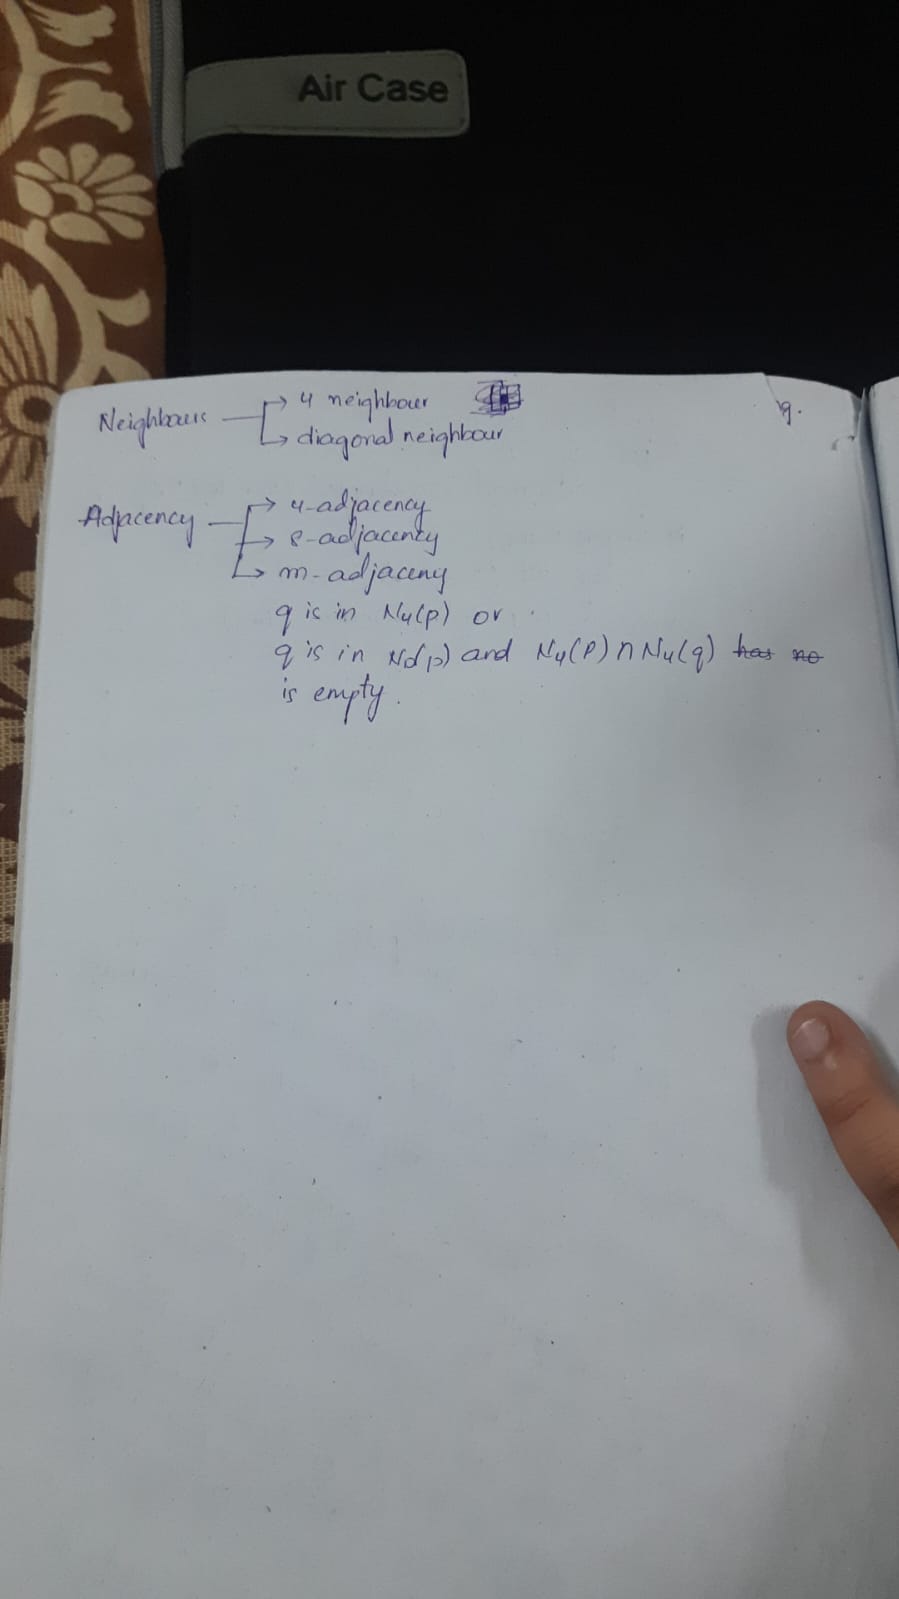 Air Case
9.
Neighbours → 4 neighbour
→ diagonal neighbour
Adjacency → 4-adjacency
→ 8-adjacency
→ m-adjaceny
q is in N4(p) or
q is in Nd(p) and N4(P) ∩ N4(q) has no
is empty.